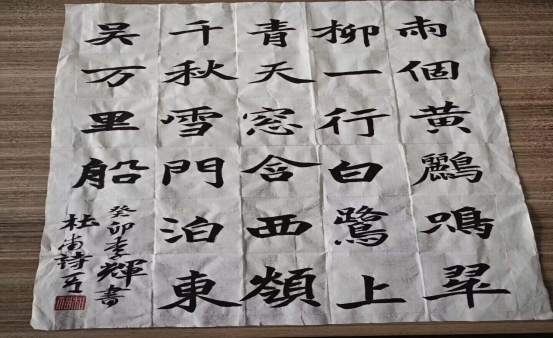 兩個黃鸝鳴翠
柳一行白鷺上
青天窓含西領
千秋雪門泊東
吴万里船
癸卯李輝書
杜甫詩